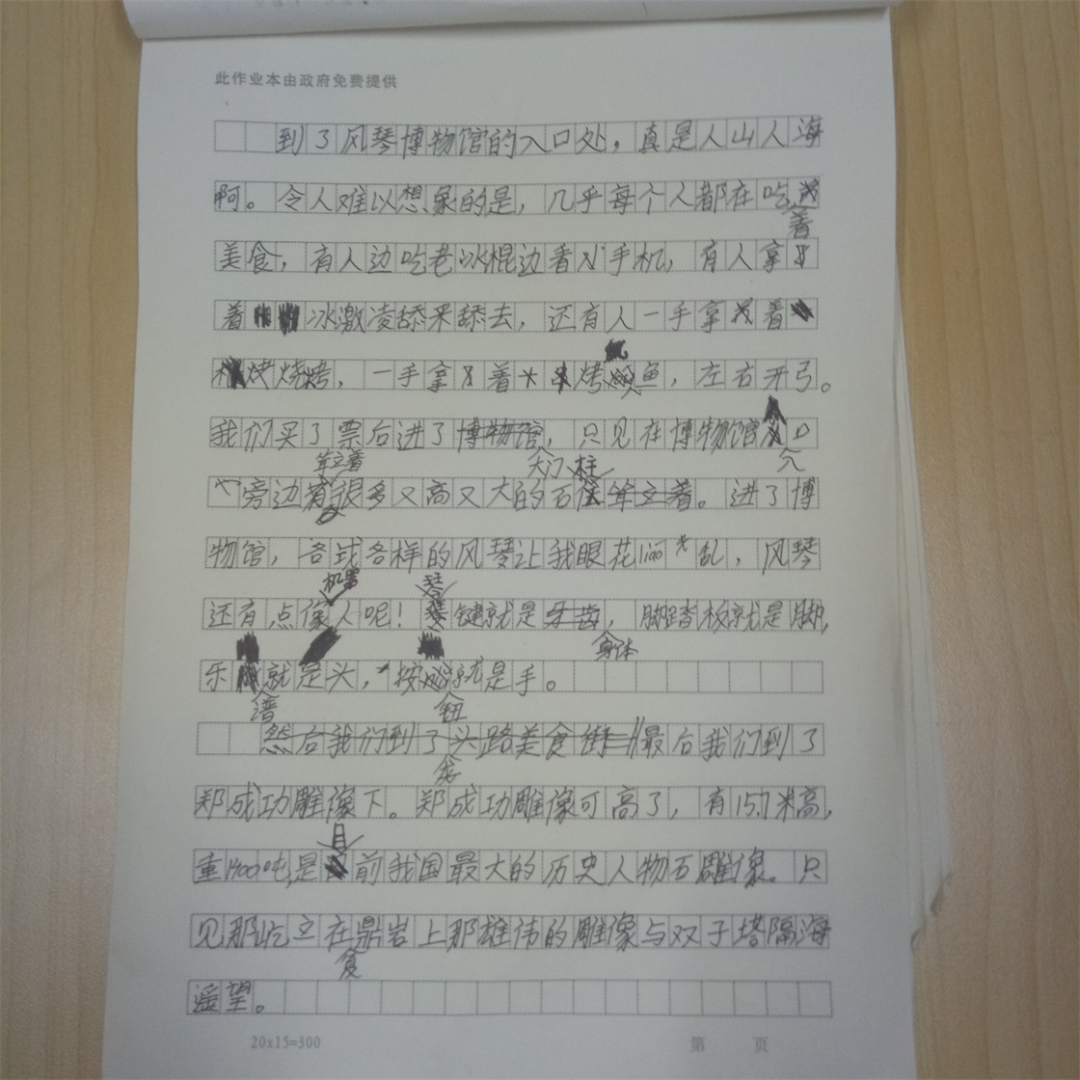 此作业本由政府免费提供
到了风琴博物馆的入口处，真是人山人海
啊。令人难以想象的是，几乎每个人都在吃着
美食，有人边吃老冰棍边看小手机，有人拿
着冰激凌舔来舔去，还有人一手拿着
烤烧烤，一手拿着烤鱼，左右开弓。
我们买了票后进了大门，只见在博物馆入口
旁边耸立着很多又高又大的石柱。进了博
物馆，各式各样的风琴让我眼花100乱，风琴
还有点像机器人呢！琴键就是身体，脚踏板就是脚，
乐谱就是头，按钮就是手。
最后我们到了
郑成功雕像下。郑成功雕像可高了，有15.7米高，
重1400吨，是目前我国最大的历史人物石雕像。只
见那屹立在覆鼎岩上那雄伟的雕像与双子塔隔海
遥望。
20x15=300
第 页